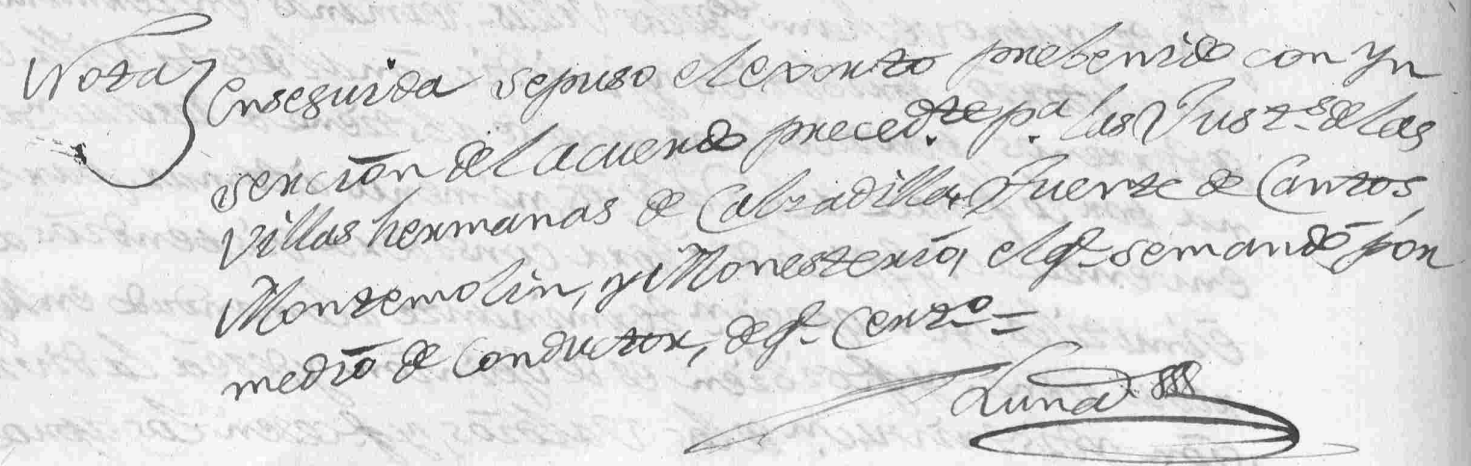 Nota
Enseguida sepuso elexorto prebenido con yn
serción del acuerdo preced.te p.a las Just.s de las
Villas hermanas de Calzadilla, Fuente de Cantos,
Montemolin, y Monesterio, el q.e semandó por
medio de conductor, de q.e Cert.o =
Luna